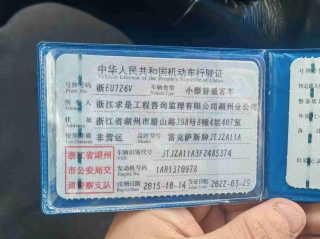 中华人民共和国机动车行驶证
Vehicle License of the People's Republic of China
号牌号码 浙EU726V 车辆类型 小型普通客车
Plate No. Vehicle Type
浙江求是工程咨询监理有限公司湖州分公司
浙江省湖州市眉山路398号8幢4层407室
非营运 品牌型号 雷克萨斯牌JTJZA11A
浙江省湖州市公安局交通警察支队
车辆识别代号 JTJZA11A3F2485374
VIN
发动机号码 1AR1370978
Engine No.
注册日期 2015-10-14 发证日期 2022-03-29